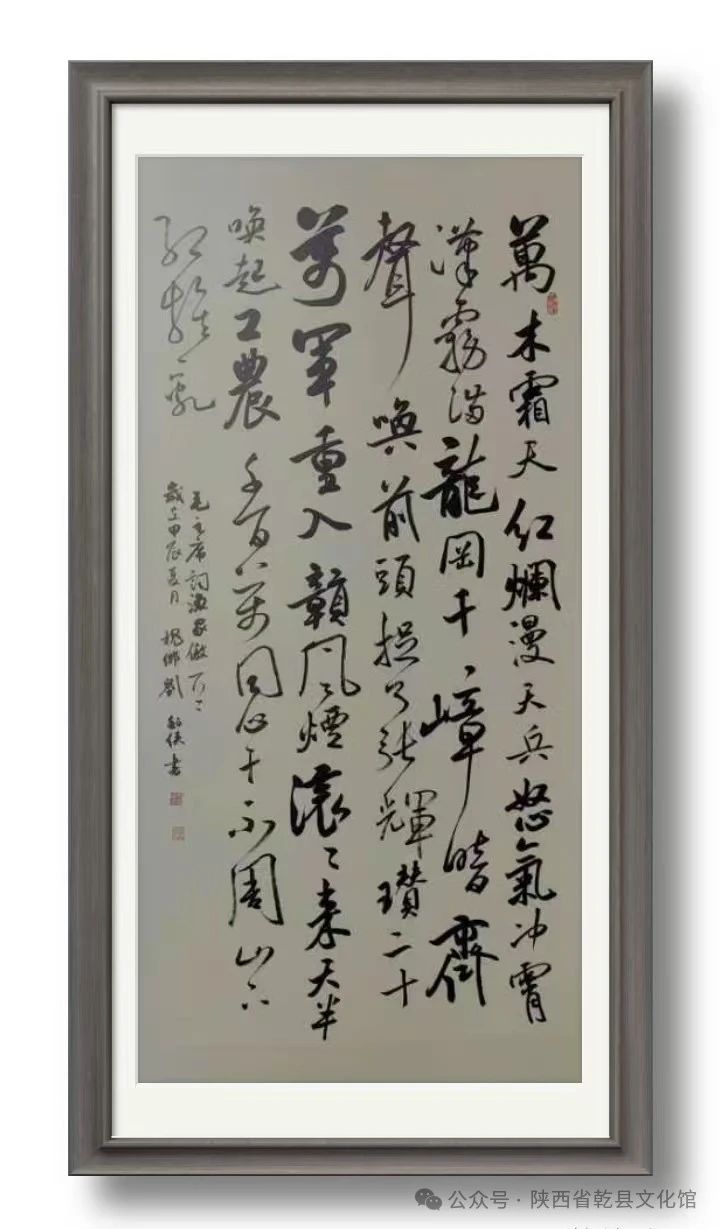 萬木霜天红爛漫天兵怒氣冲霄
漢霧满龍岡千嶂暗齊
聲唤前頭捉了張輝瓚二十
萬軍重入贛風煙滚〻来天半
唤起工農千百万同心干不周山下
红旗乱
毛主席詞漁家傲
歲在甲辰夏月 槐鄉劉 侠書
公众号 · 陕西省乾县文化馆